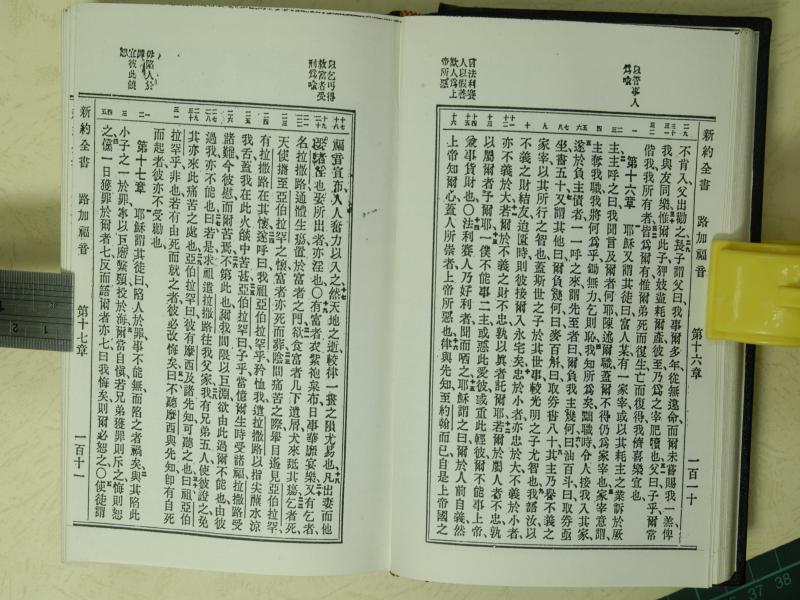 以管事人爲喻
責法利賽人以假善欺人爲上帝所惡
新約全書　路加福音　第十六章　一百一十
不肯入父出勸之長子謂父曰我事爾多年從無違命而爾未嘗賜我一羔俾
我與友同樂惟爾此子狎妓盡耗爾產彼至乃爲之宰肥犢也父曰子乎爾常
偕我我所有者皆爲爾有惟爾弟死而復生亡而復得我儕喜樂宜也
第十六章　耶穌又謂其徒曰富人某有一家宰或以其耗主之業訴於厥
主主呼之曰我聞言及爾者何耶陳述爾職蓋爾不得仍爲家宰也家宰意謂
主奪我職我將何爲乎鋤無力乞則恥我知所爲矣黜職時令人接我入其家
遂於負主債者一一呼之來謂先至者曰爾負我主幾何曰油百斗曰取券亟
坐書五十又謂其他曰爾負幾何曰麥百斛曰取券書八十其主乃譽不義之
家宰以其所行之智也蓋斯世之子於其世事較光明之子尤智也我語汝以
不義之財結友迨匱時則彼接爾入永宅矣忠於小者亦忠於大不義於小者
亦不義於大若爾於不義之財不忠孰以眞者託爾耶若爾於屬人者不忠孰
以屬爾者予爾耶一僕不能事二主或惡此愛彼或重此輕彼爾不能事上帝
兼事貨財也○法利賽人乃好利者聞而哂之耶穌謂之曰爾於人前自義然
上帝知爾心蓋人所崇者上帝所惡也律與先知至約翰而已自是上帝國之
以乞丐得救富者受刑爲喻
毋陷人於罪宜彼此饒恕
福音宣布人人奮力以入之然天地之逝較律一畫之隕尤易也凡出妻而他
娶者淫也娶所出者亦淫也○有富者衣紫袍枲布日事華靡宴樂又有乞者
名拉撒路遍體生瘍置於富者之門欲食富者几下遺屑犬來舐其瘍乞者死
天使攜至亞伯拉罕之懷富者亦死而葬陰間痛苦之際舉目遙見亞伯拉罕
有拉撒路在其懷遂呼曰我祖亞伯拉罕乎矜恤我遣拉撒路以指尖蘸水涼
我舌蓋我在此火燄中苦甚亞伯拉罕曰子乎當憶爾生時受諸福拉撒路受
諸難今彼慰而爾苦焉不第此也爾我間限以巨淵欲由此過爾不能也由彼
過我亦不能也曰若是求祖遣拉撒路往我父家我有兄弟五人使彼證之免
其亦來此痛苦之處也亞伯拉罕曰彼有摩西及諸先知可聽之也曰祖亞伯
拉罕乎非也若有由死而就之者彼必改悔矣曰不聽摩西與先知卽有自死
而起者彼亦不受勸也
第十七章　耶穌謂其徒曰陷人於罪事不能無而陷之者禍矣與其陷此
小子之一於罪寧以巨磨繫頸投於海爾當自愼若兄弟獲罪則斥之悔則恕
之儻一日獲罪於爾者七反而語爾者亦七曰我悔矣則爾必恕之○使徒謂
新約全書　路加福音　第十七章　一百十一
1
2
37
38